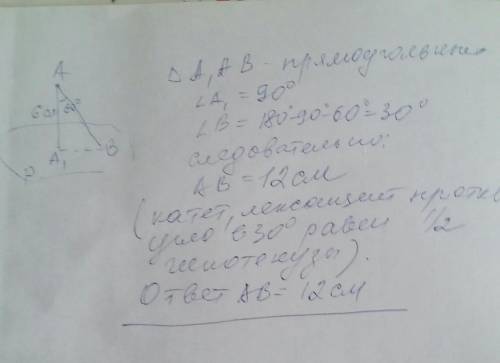 A
6см 60°
A₁ B
△ A₁AB - прямоугольный
∠A₁ = 90°
∠B = 180°-90°-60°=30°
следовательно:
AB = 12 см
(катет, лежащий против
угла в 30° равен 1/2
гипотенузы).
Ответ AB = 12 см